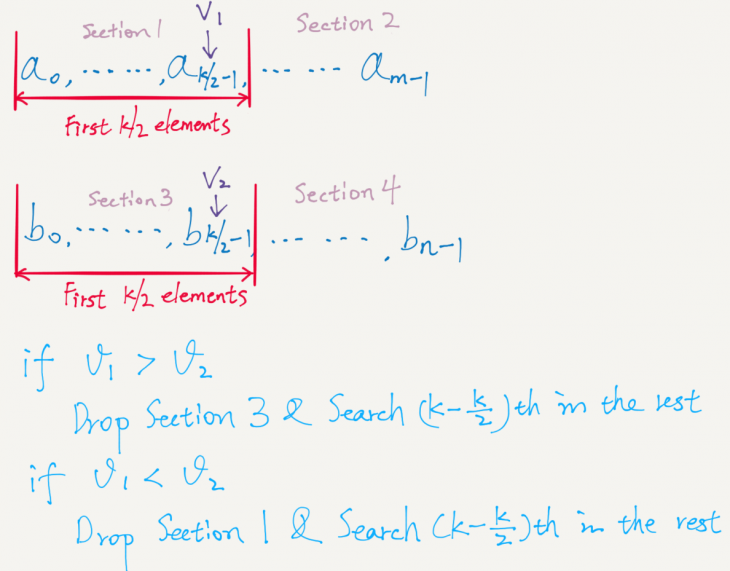 V₁
Section 1 Section 2
a₀, ......, a_{k/2-1}, ...... a_{m-1}
First k/2 elements
V₂
Section 3 Section 4
b₀, ......, b_{k/2-1}, ......, b_{n-1}
First k/2 elements
if v₁ > v₂
Drop Section 3 & Search (k-k/2)th in the rest
if v₁ < v₂
Drop Section 1 & Search (k-k/2)th in the rest